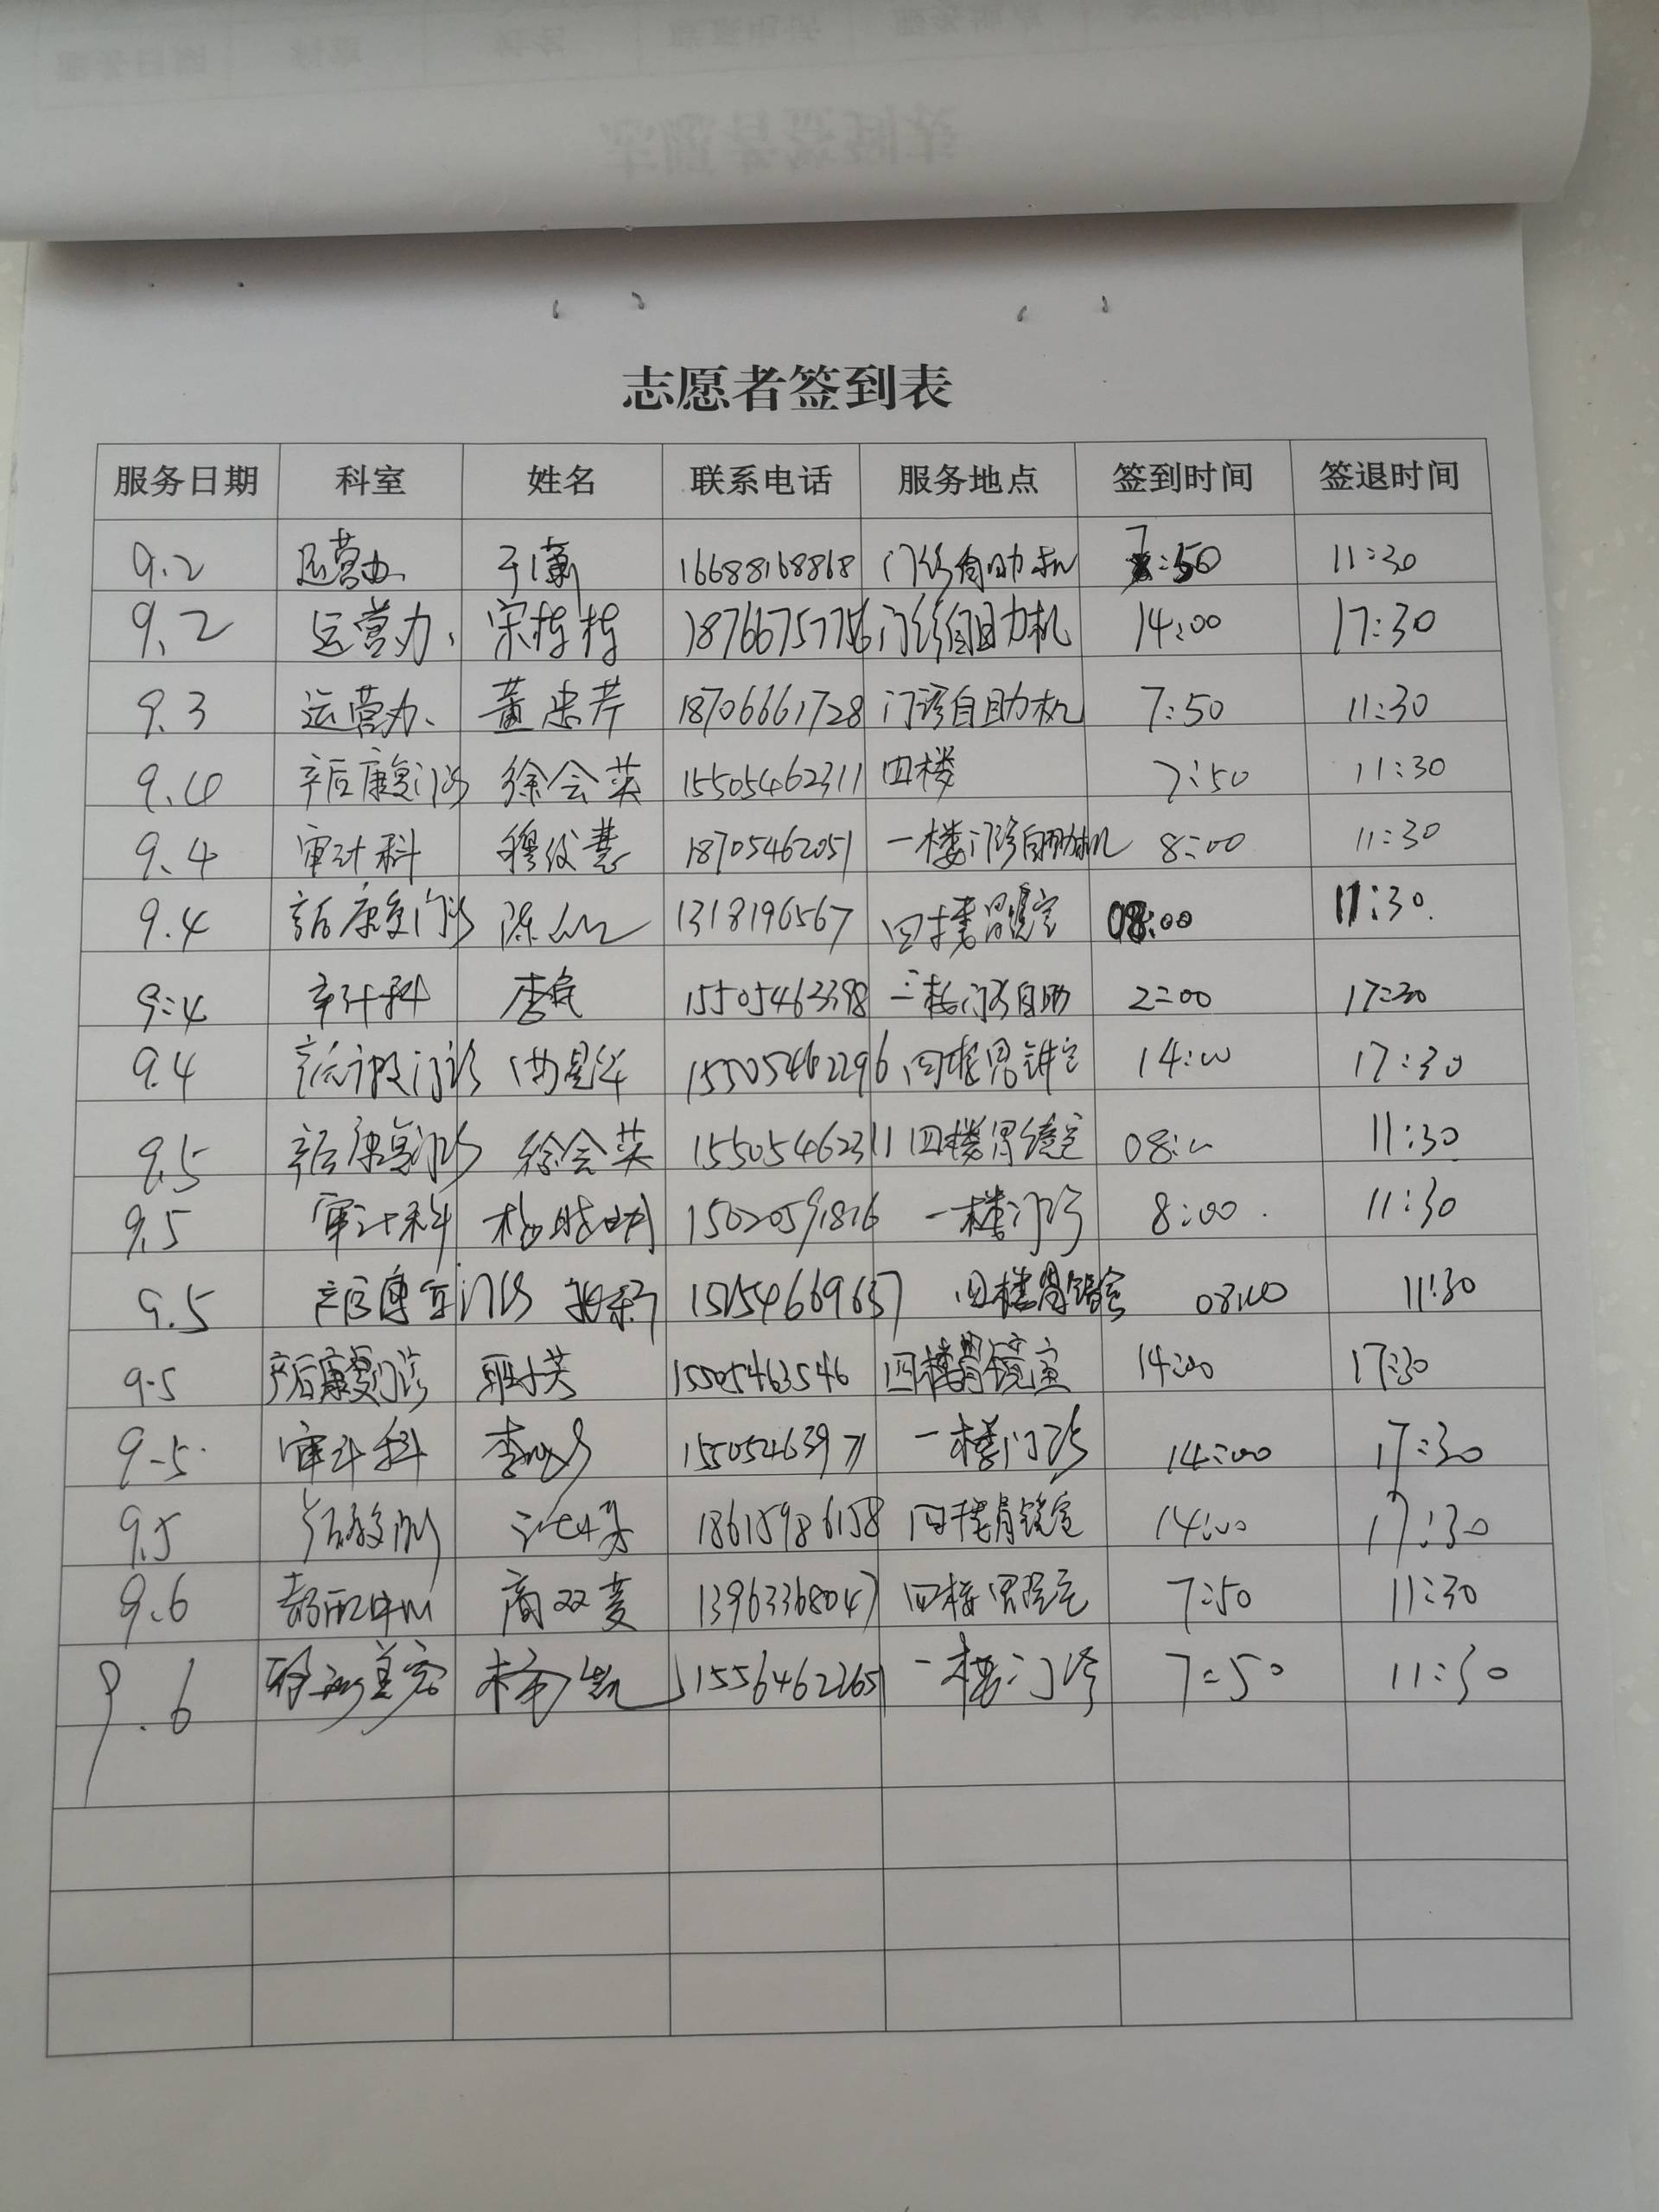 志愿者签到表
服务日期 科室 姓名 联系电话 服务地点 签到时间 签退时间
9.2 运营办 于潇 16688168868 门诊自助机 7:50 11:30
9.2 运营办、 宋梅梅 18766757756 门诊自助机 14:00 17:30
9.3 运营办、 董忠芹 18706661728 门诊自助机 7:50 11:30
9.4 产后康复门诊 徐会英 15505462311 四楼 7:50 11:30
9.4 审计科 18705462051 一楼门诊自助机 8:00 11:30
9.4 产后康复门诊 1318196567 四楼胃镜室 08:00 11:30.
9:4 审计科 15505463398 门诊自助 2:00 17:30
9.4 门诊 15505462296 四楼胃镜室 14:00 17:30
9.5 产后康复门诊 徐会英 15505462311 四楼胃镜室 08: 11:30
9.5 审计科 15020591816 一楼门诊 8:00. 11:30
9.5 产后康复门诊 15154669637 四楼胃镜室 08:00 11:30
9.5 产后康复门诊 15505463546 四楼胃镜室 14:00 17:30
9-5. 审计科 1550546397 一楼门诊 14:00 17:30
9.5 18615986158 四楼胃镜室 14:00 17:30
9.6 商双菱 13963368047 四楼胃镜室 7:50 11:30
9.6 15564622651 一楼门诊 7:50 11:30